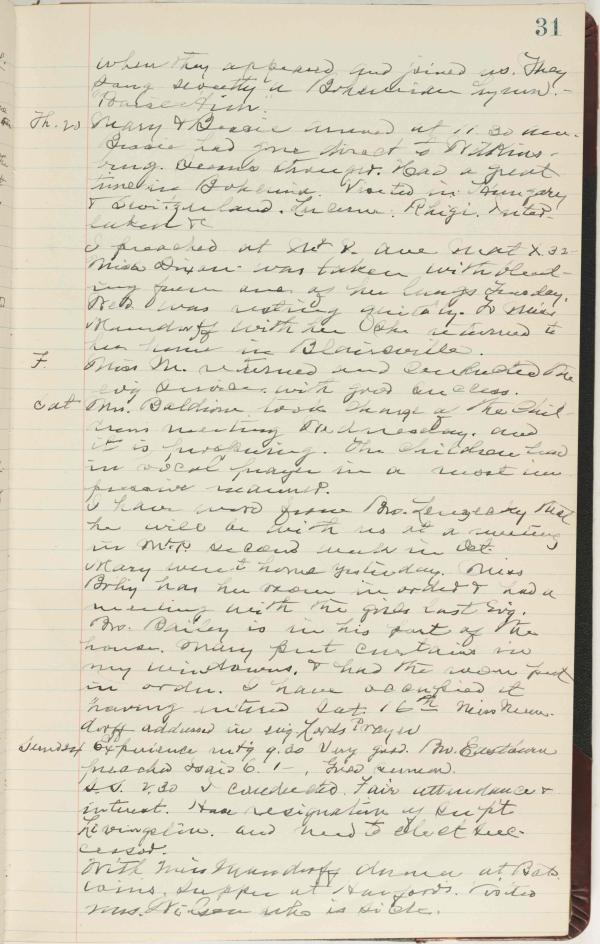 31
when they appeared and joined us. They
sang sweetly a Bohemian hymn.
Th. 20 Mary & Bessie arrived at 11.30 am.
Bessie had gone direct to Wilkins-
burg. Seems stronger. Had a great
time in Bohemia. Visited in Hungary
& Switzerland. Lucerne. Rhigi. Inter-
laken &c
I preached at Mt V. ave Mat X. 32
Miss Dixon was taken with bleed-
ing from one of her lungs Tuesday.
Wed. was resting quietly. Miss
Mundorff with her. She returned to
her home in Blairsville.
F. Miss M. returned and conducted the
evg service with good success.
Sat Mrs. Baldwin took charge of the Chil-
drens meeting Wednesday. and
it is prospering. The children lead
in vocal prayer in a most im
pressive manner.
I have word from Bro. that
he will be with us at a meeting
in Mt. P. second week in Oct.
Mary went home yesterday. Miss
has her room in order & had a
meeting with the girls last Evg.
Bro. Bailey is in his part of the
house. Mary put curtains in
my windows, & had the room put
in order. I have occupied it
having entered Sat. 16th Miss Mun-
dorff addressed in evg Lords Prayer
Sunday Experience mtg 9.30 Very good. Bro.
preached Isaiah 6.1-, Good sermon.
S.S. 2.30 I conducted. Fair attendance &
interest. Had resignation of Supt
Livingston. and need to elect suc-
cessor.
With Miss Mundorff dinner at
Supper at Visited
Mrs. Wilson who is sick.